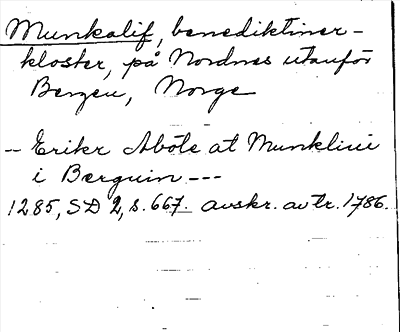 Munkalif, benediktiner-
kloster, på Nordnes utanför
Bergen, Norge
-- Erikr Abote at Munklivi
i Berguin ---
1285, SD 2, s. 667. avskr. av tr. 1786.